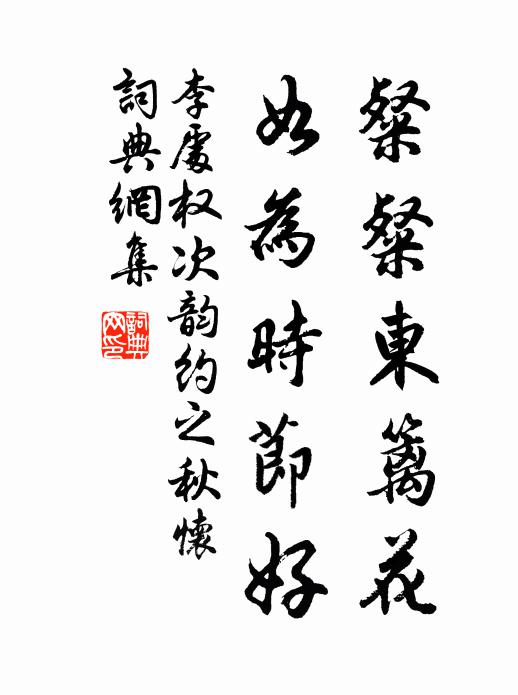 粲粲東籬花
如為時節好
李處权次韵约之秋懷
詞典網集
詞典
网印